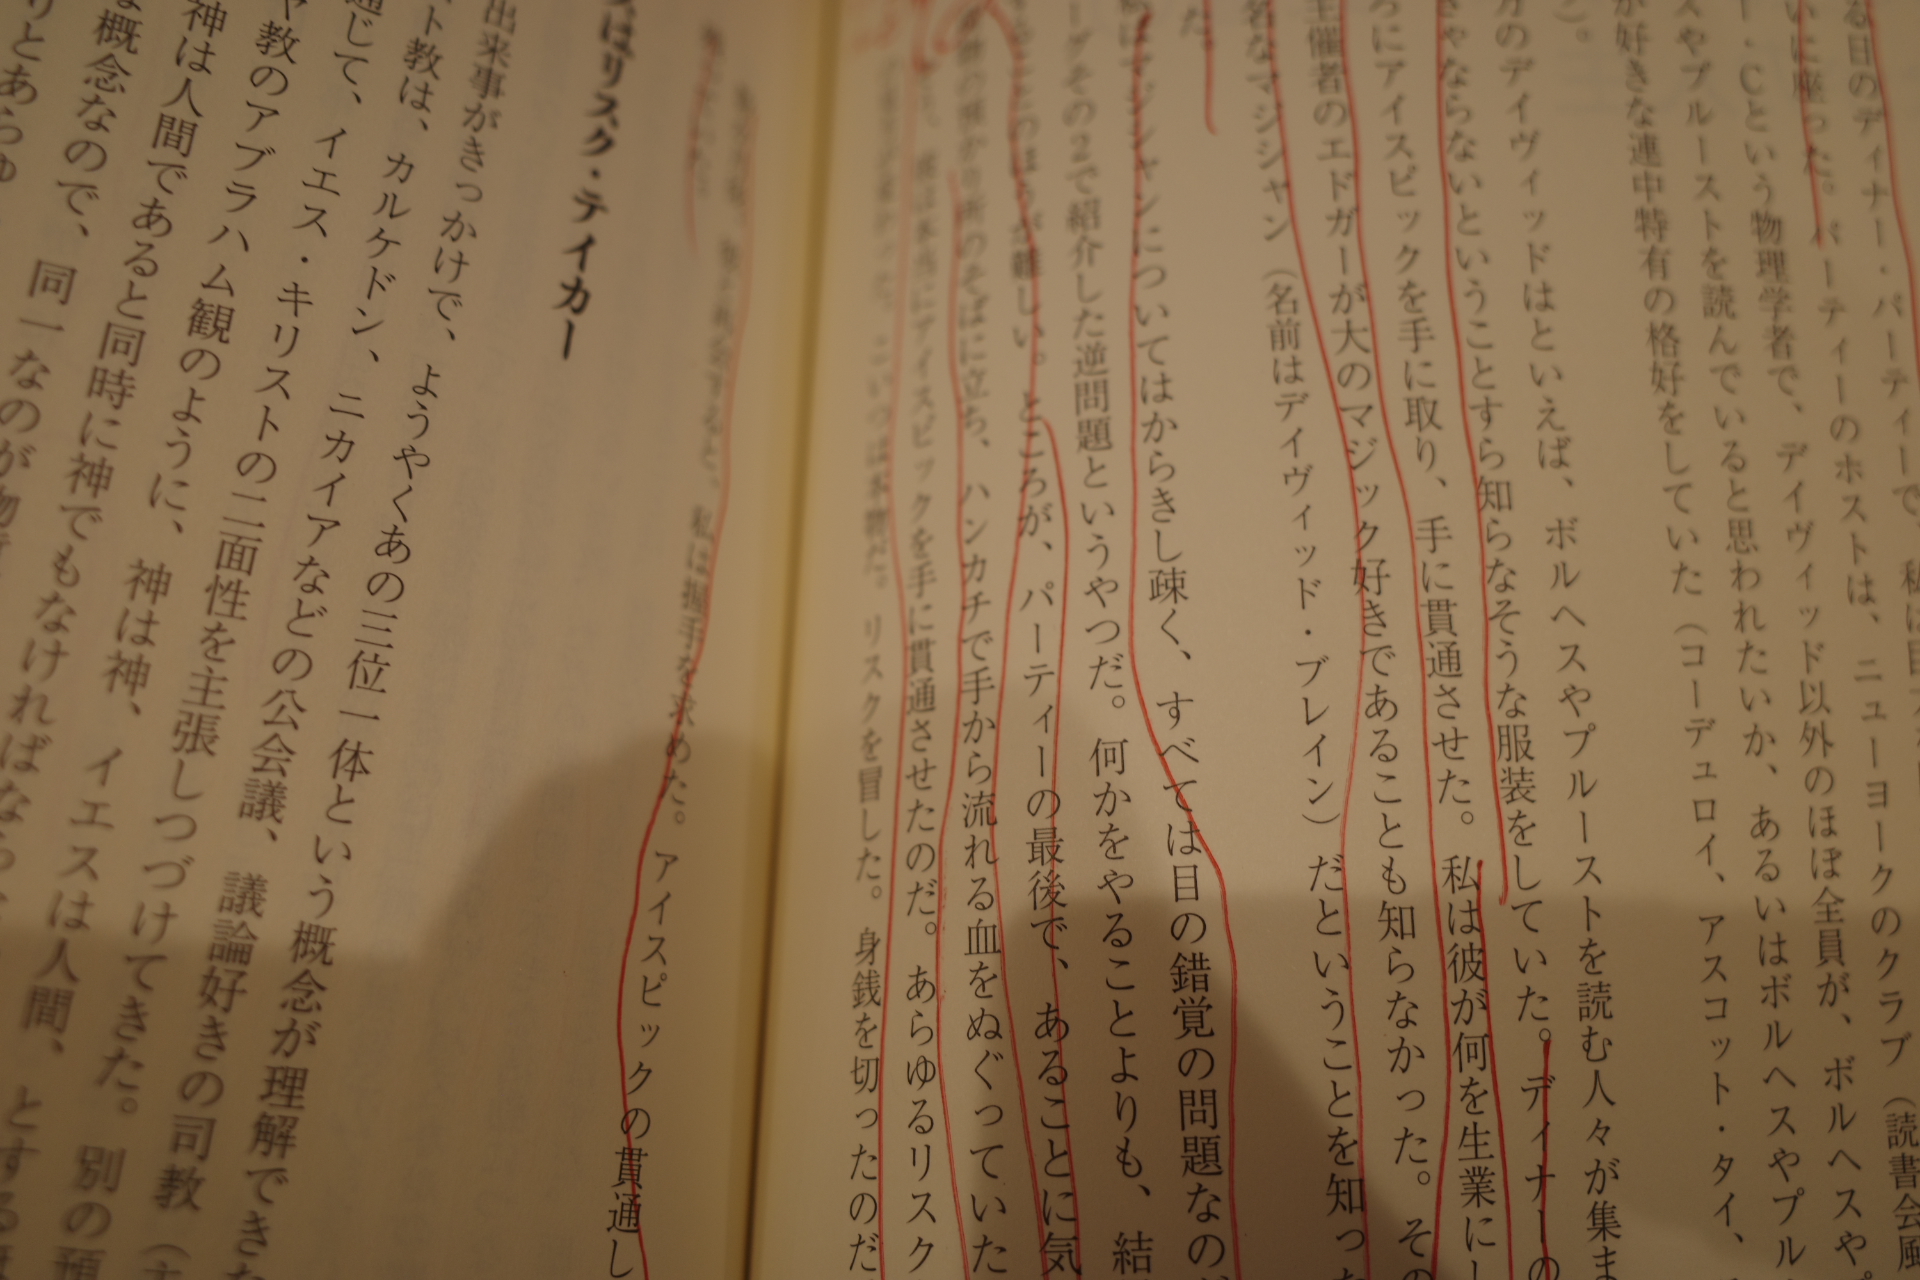 る日のディナー・パーティーで、私は
いに座った。パーティーのホストは、ニューヨークのクラブ（読書会風
ー・Cという物理学者で、デイヴィッド以外のほぼ全員が、ボルヘスや
スやプルーストを読んでいると思われたいか、あるいはボルヘスやプル
が好きな連中特有の格好をしていた（コーデュロイ、アスコット・タイ、
）。
方のデイヴィッドはといえば、ボルヘスやプルーストを読む人々が集ま
きゃならないということすら知らなそうな服装をしていた。ディナーの
ろにアイスピックを手に取り、手に貫通させた。私は彼が何を生業にし
主催者のエドガーが大のマジック好きであることも知らなかった。その
名なマジシャン（名前はデイヴィッド・ブレイン）だということを知っ
た。
はマジシャンについてはからきし疎く、すべては目の錯覚の問題なの
ーグその2で紹介した逆問題というやつだ。何かをやることよりも、結
ることのほうが難しい。ところが、パーティーの最後で、あることに気
のそばに立ち、ハンカチで手から流れる血をぬぐっていた
彼は本当にアイスピックを手に貫通させたのだ。あらゆるリスク
こいつは本物だ。リスクを冒した。身銭を切ったのだ
すると、私は握手を求めた。アイスピックの貫通し
はリスク・テイカー
出来事がきっかけで、ようやくあの三位一体という概念が理解でき
ト教は、カルケドン、ニカイアなどの公会議、議論好きの司教（
通じて、イエス・キリストの二面性を主張しつづけてきた。別の
ヤ教のアブラハム観のように、神は神、イエスは人間、とする
神は人間であると同時に神でもなければならな
な概念なので、同一なのが
りとあらゆ